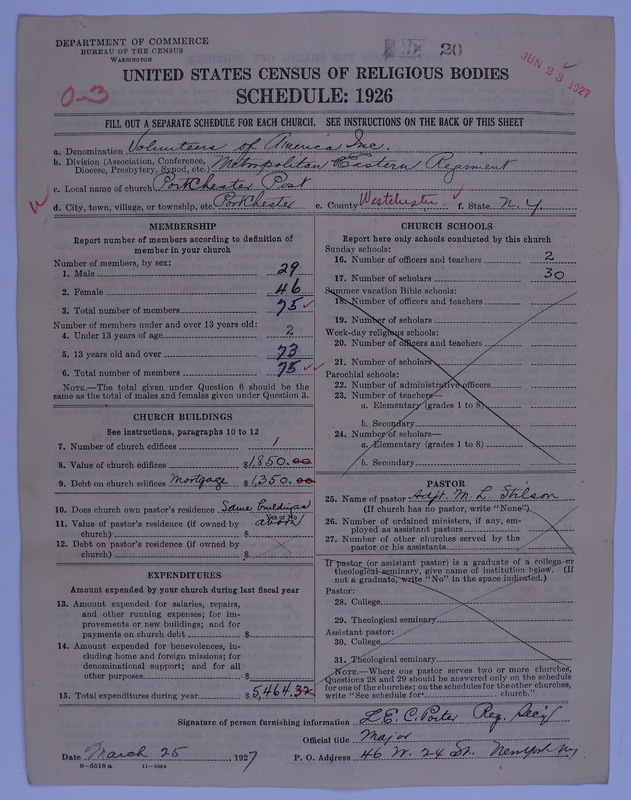 DEPARTMENT OF COMMERCE
BUREAU OF THE CENSUS
WASHINGTON
20
JUN 23 1927
UNITED STATES CENSUS OF RELIGIOUS BODIES
SCHEDULE: 1926
0-3
FILL OUT A SEPARATE SCHEDULE FOR EACH CHURCH. SEE INSTRUCTIONS ON THE BACK OF THIS SHEET
a. Denomination Volunteers of America Inc.
b. Division (Association, Conference, Diocese, Presbytery, Synod, etc.) Metropolitan Eastern Regiment
c. Local name of church PortChester Post
d. City, town, village, or township, etc. PortChester e. County Westchester f. State N.Y.
MEMBERSHIP
Report number of members according to definition of
member in your church
Number of members, by sex:
1. Male 29
2. Female 46
3. Total number of members 75
Number of members under and over 13 years old:
4. Under 13 years of age 2
5. 13 years old and over 73
6. Total number of members 75
NOTE.—The total given under Question 6 should be
same as the total of males and females given under Question 3.
CHURCH BUILDINGS
See instructions, paragraphs 10 to 12
7. Number of church edifices 1
8. Value of church edifices $1,850.00
9. Debt on church edifices Mortgage $1,350.00
10. Does church own pastor's residence Same buildings
Yes or No
11. Value of pastor's residence (if owned by above
church) $
12. Debt on pastor's residence (if owned by
church) $
EXPENDITURES
Amount expended by your church during last fiscal year
13. Amount expended for salaries, repairs,
and other running expenses; for im-
provements or new buildings; and for
payments on church debt $
14. Amount expended for benevolences, in-
cluding home and foreign missions; for
denominational support; and for all
other purposes $
15. Total expenditures during year $5,464.32
CHURCH SCHOOLS
Report here only schools conducted by this church
Sunday schools:
16. Number of officers and teachers 2
17. Number of scholars 30
Summer vacation Bible schools:
18. Number of officers and teachers
19. Number of scholars
Week-day religious schools:
20. Number of officers and teachers
21. Number of scholars
Parochial schools:
22. Number of administrative officers
23. Number of teachers—
a. Elementary (grades 1 to 8)
b. Secondary
24. Number of scholars—
a. Elementary (grades 1 to 8)
b. Secondary
PASTOR
25. Name of pastor Adjt. M. L. Stilson
(If church has no pastor, write "None")
26. Number of ordained ministers, if any, em-
ployed as assistant pastors
27. Number of other churches served by the
pastor or his assistants
If pastor (or assistant pastor) is a graduate of a college or
theological seminary, give name of institution below. (If
not a graduate, write "No" in the space indicated.)
Pastor:
28. College
29. Theological seminary
Assistant pastor:
30. College
31. Theological seminary
NOTE.—Where one pastor serves two or more churches,
Questions 28 and 29 should be answered only on the schedule
for one of the churches; on the schedules for the other churches,
write "See schedule for church."
Signature of person furnishing information L. E. C. Porter Reg. Sec'y
Official title Major
Date March 25, 1927 P. O. Address 46 W. 24 St. NY
8—5518 a 11—9054